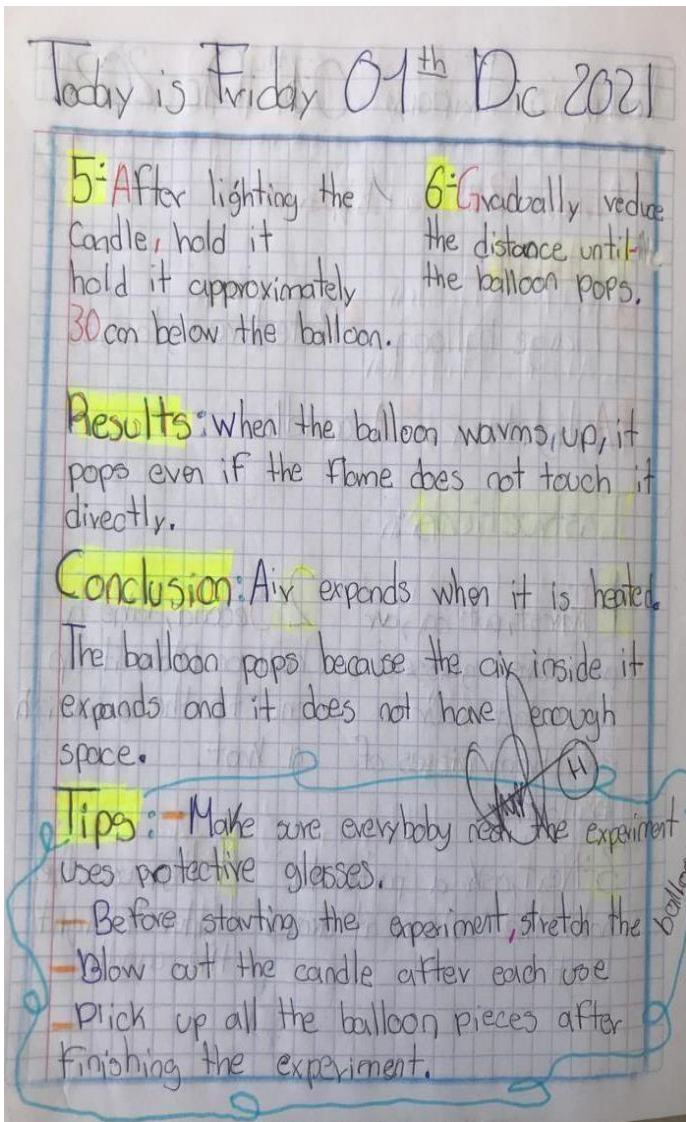 Today is Friday 01th Dic 2021
5- After lighting the
Candle, hold it
hold it approximately
30 cm below the balloon.
6- Gradually reduce
the distance until
the balloon pops.
Results: when the balloon warms, up, it
pops even if the flame does not touch it
directly.
Conclusion: Air expands when it is heated.
The balloon pops because the air inside it
expands and it does not have enough
space.
H
Tips: - Make sure everyboby near the experiment
uses protective glasses.
- Before starting the experiment, stretch the balloon
- Blow out the candle after each use
- Plick up all the balloon pieces after
finishing the experiment.